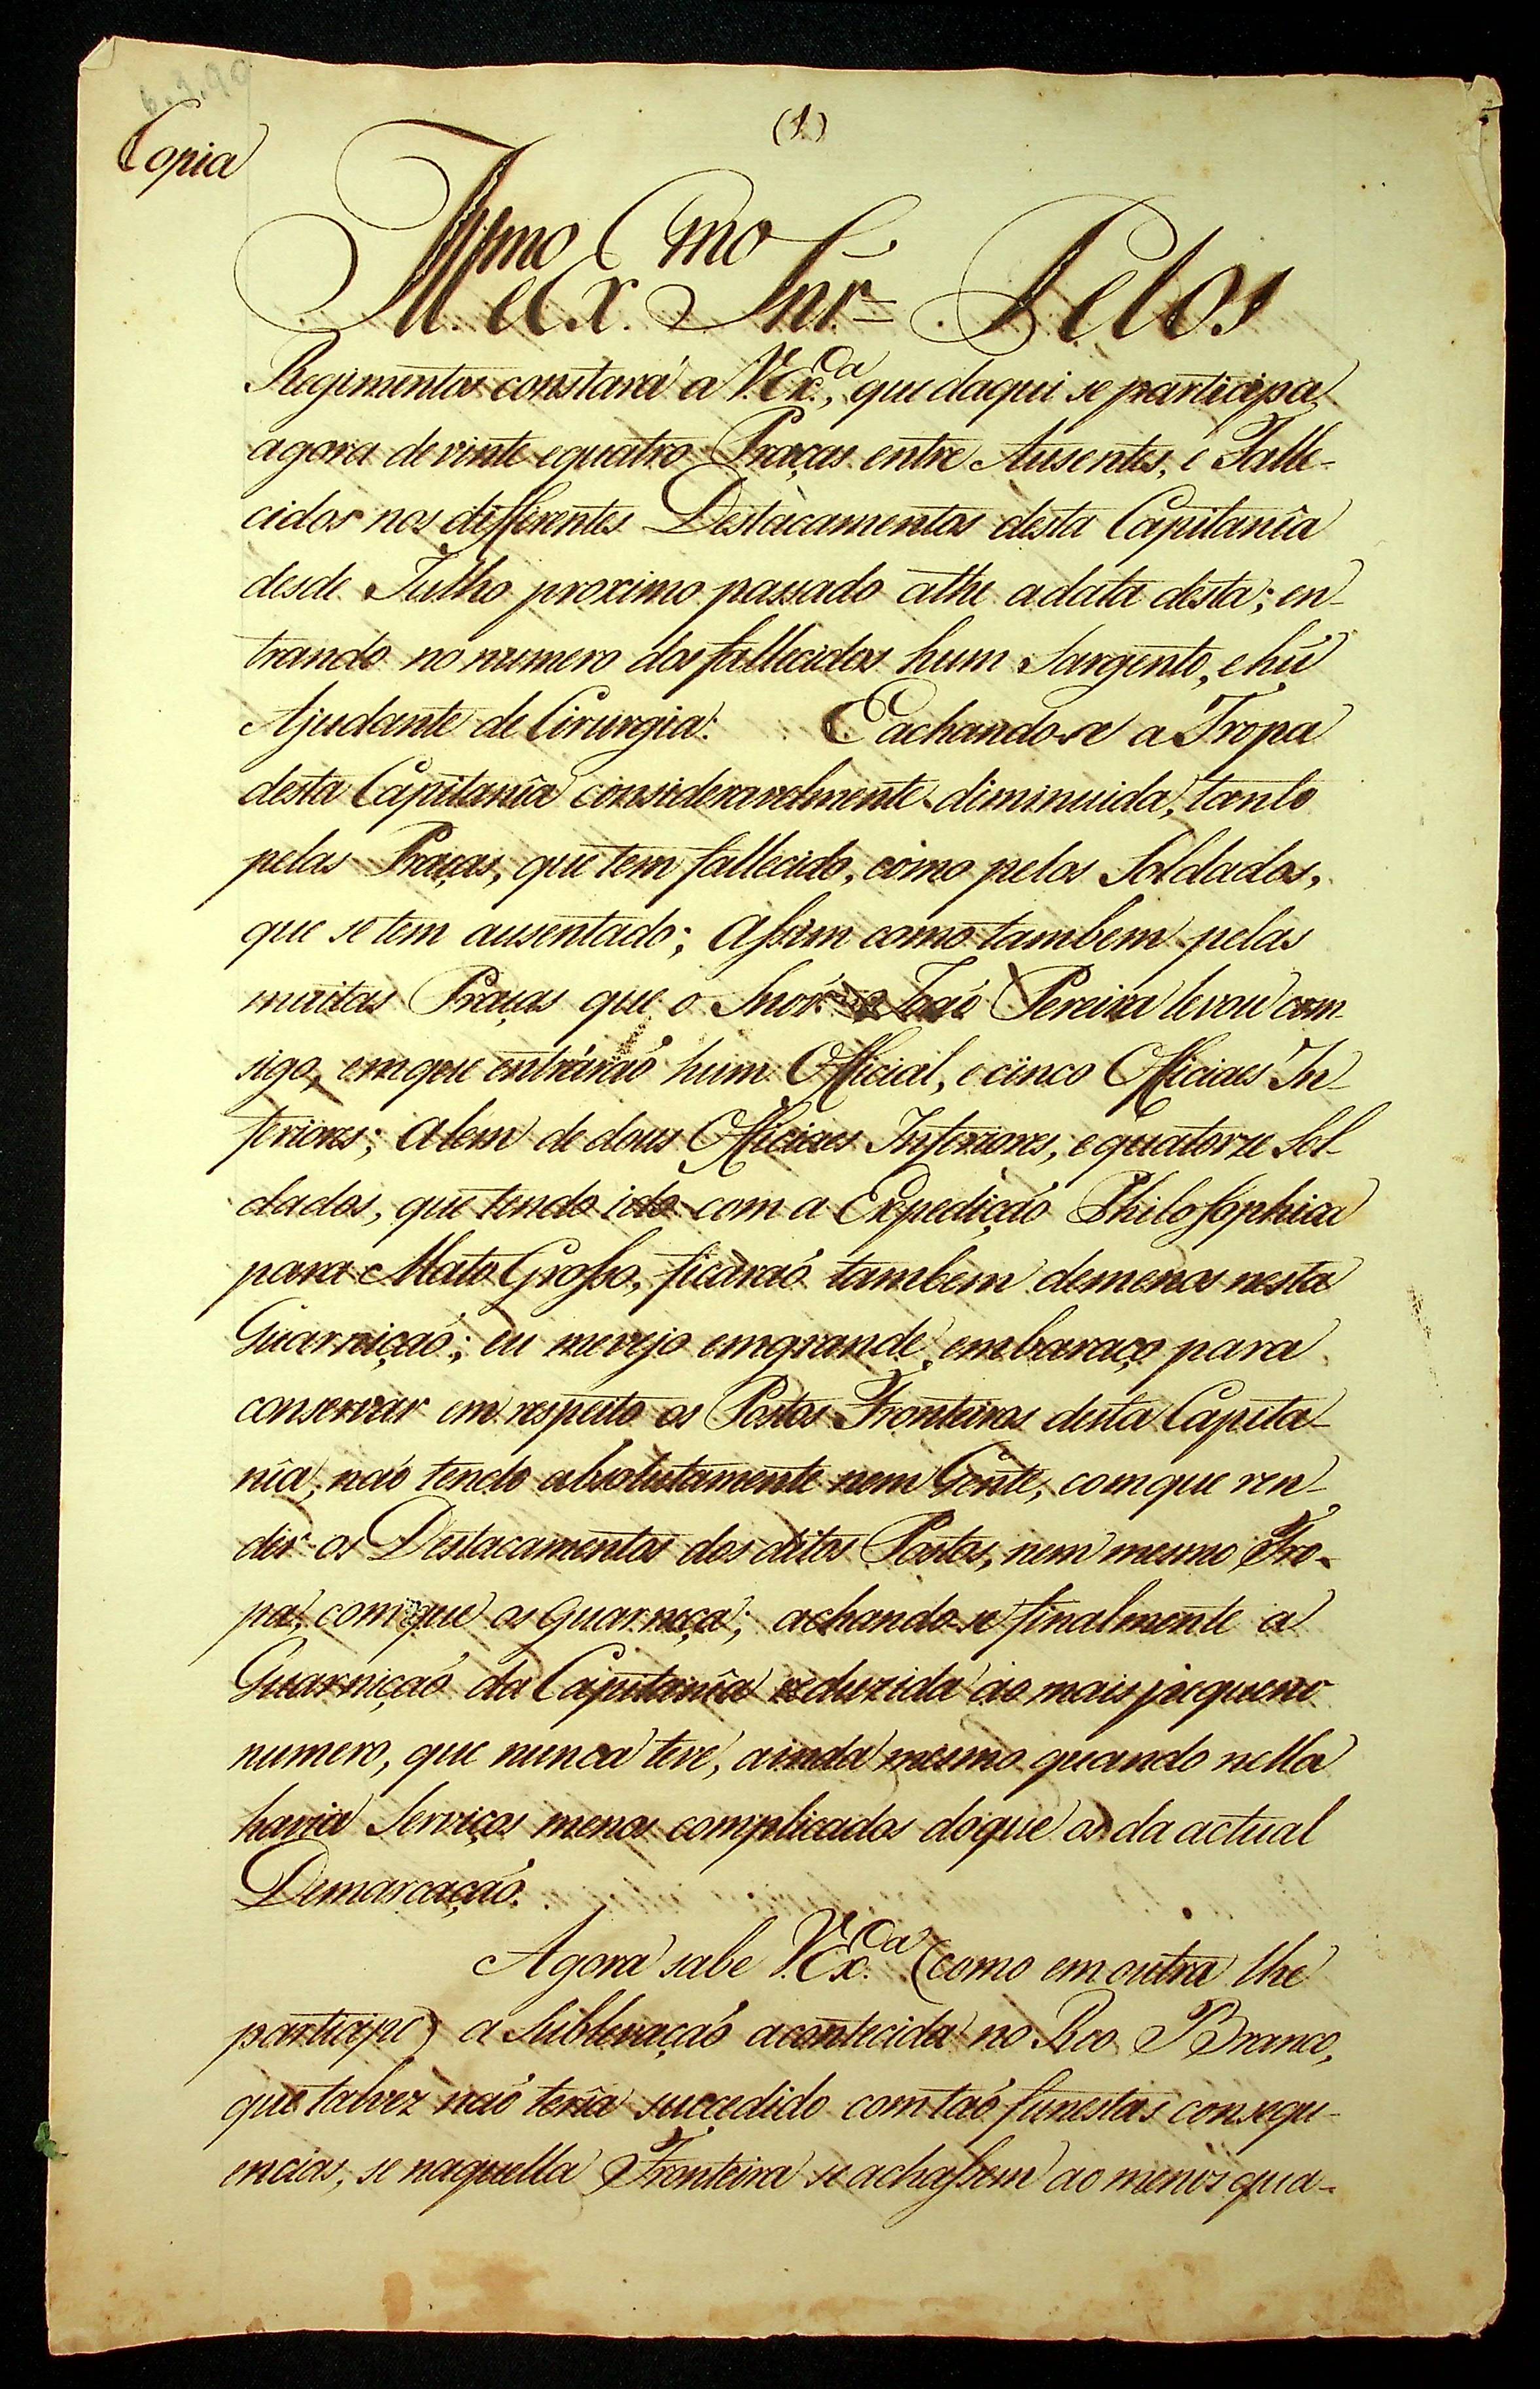 (1)
Copia
Ill.mo e Ex.mo Snr. Pelos
Regimentos constará a V.Ex.cia, que daqui se participa
agora de vinte e quatro Praças entre Ausentes, e Falle-
cidos nos differentes Destacamentos desta Capitanîa
desde Julho proximo passado athe a data desta; en-
trando no numero dos fallecidos hum Sargento, e hũ
Ajudante de Cirurgia: E achando-se a Tropa
desta Capitanîa consideravelmente diminuida, tanto
pelas Praças, que tem fallecido, como pelos Soldados,
que se tem ausentado; Assim como tambem pelas
muitas Praças que o Snór João Pereira levou com
sigo, em que entráraõ hum Official, e cinco Officiaes In-
feriores; Alem de dous Officiaes Inferiores, e quatorze Sol-
dados, que tendo ido com a Expediçaõ Philosophica
para Mato Grosso, ficáraõ tambem de menos nesta
Guarniçaõ; eu me vejo em grande embaraço para
conservar em respeito os Postos Fronteiros desta Capita-
nîa, naõ tendo absolutamente nem Gente, com que ren-
der os Destacamentos dos ditos Postos, nem mesmo Tro-
pa, com que os guarneça; achando-se finalmente a
Guarniçaõ da Capitanîa reduzida ao mais pequeno
numero, que nunca teve, ainda mesmo quando nella
havia Serviços menos complicados do que os da actual
Demarcaçaõ.
Agora sabe V.Ex.cia (como em outra lhe
participo) a Sublevaçaõ acontecida no Rio Branco,
que talvez naõ terîa succedido com taõ funestas consequ-
encias, se naquella Fronteira se achassem ao menos qua-